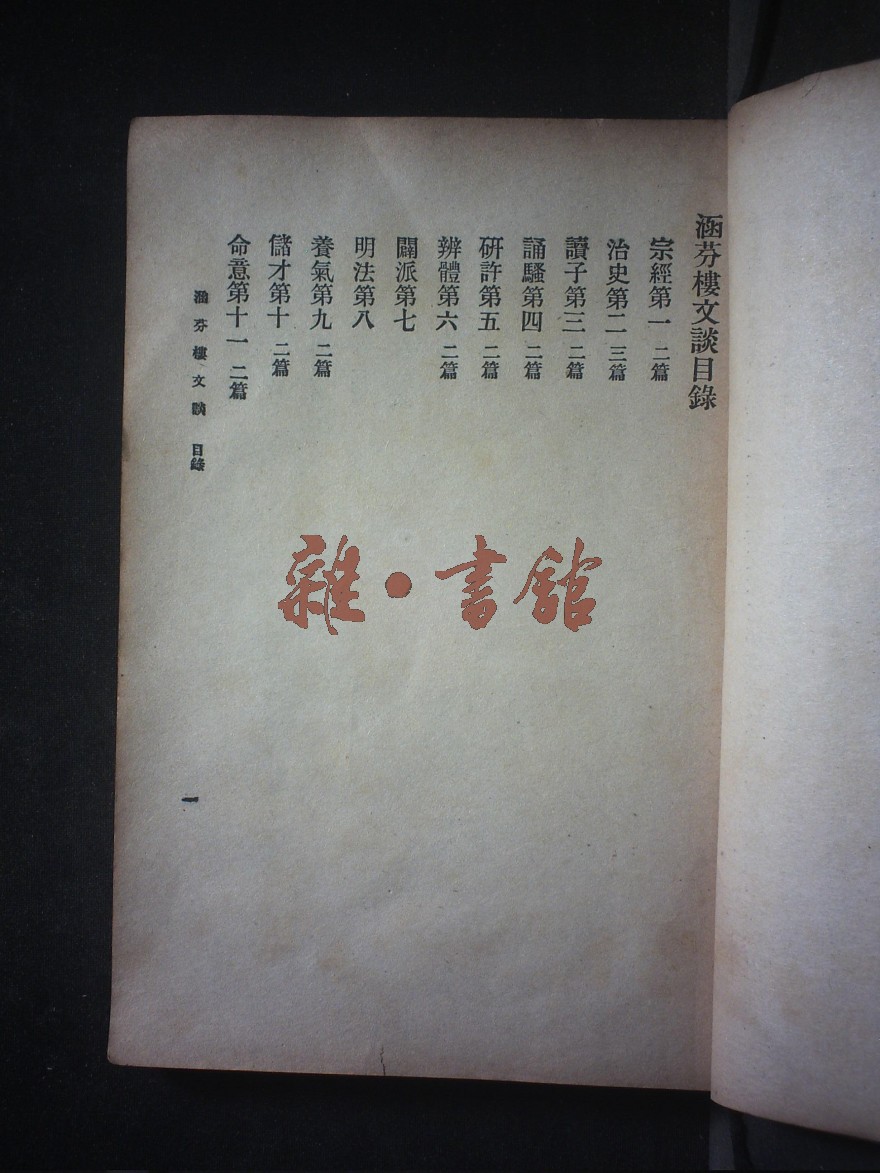 涵芬樓文談目錄
宗經第一 二篇
治史第二 三篇
讀子第三 二篇
誦騷第四 二篇
研許第五 二篇
辨體第六 二篇
闢派第七
明法第八
養氣第九 二篇
儲才第十 二篇
命意第十一 二篇
涵芬樓文談 目錄
一
雜·書館